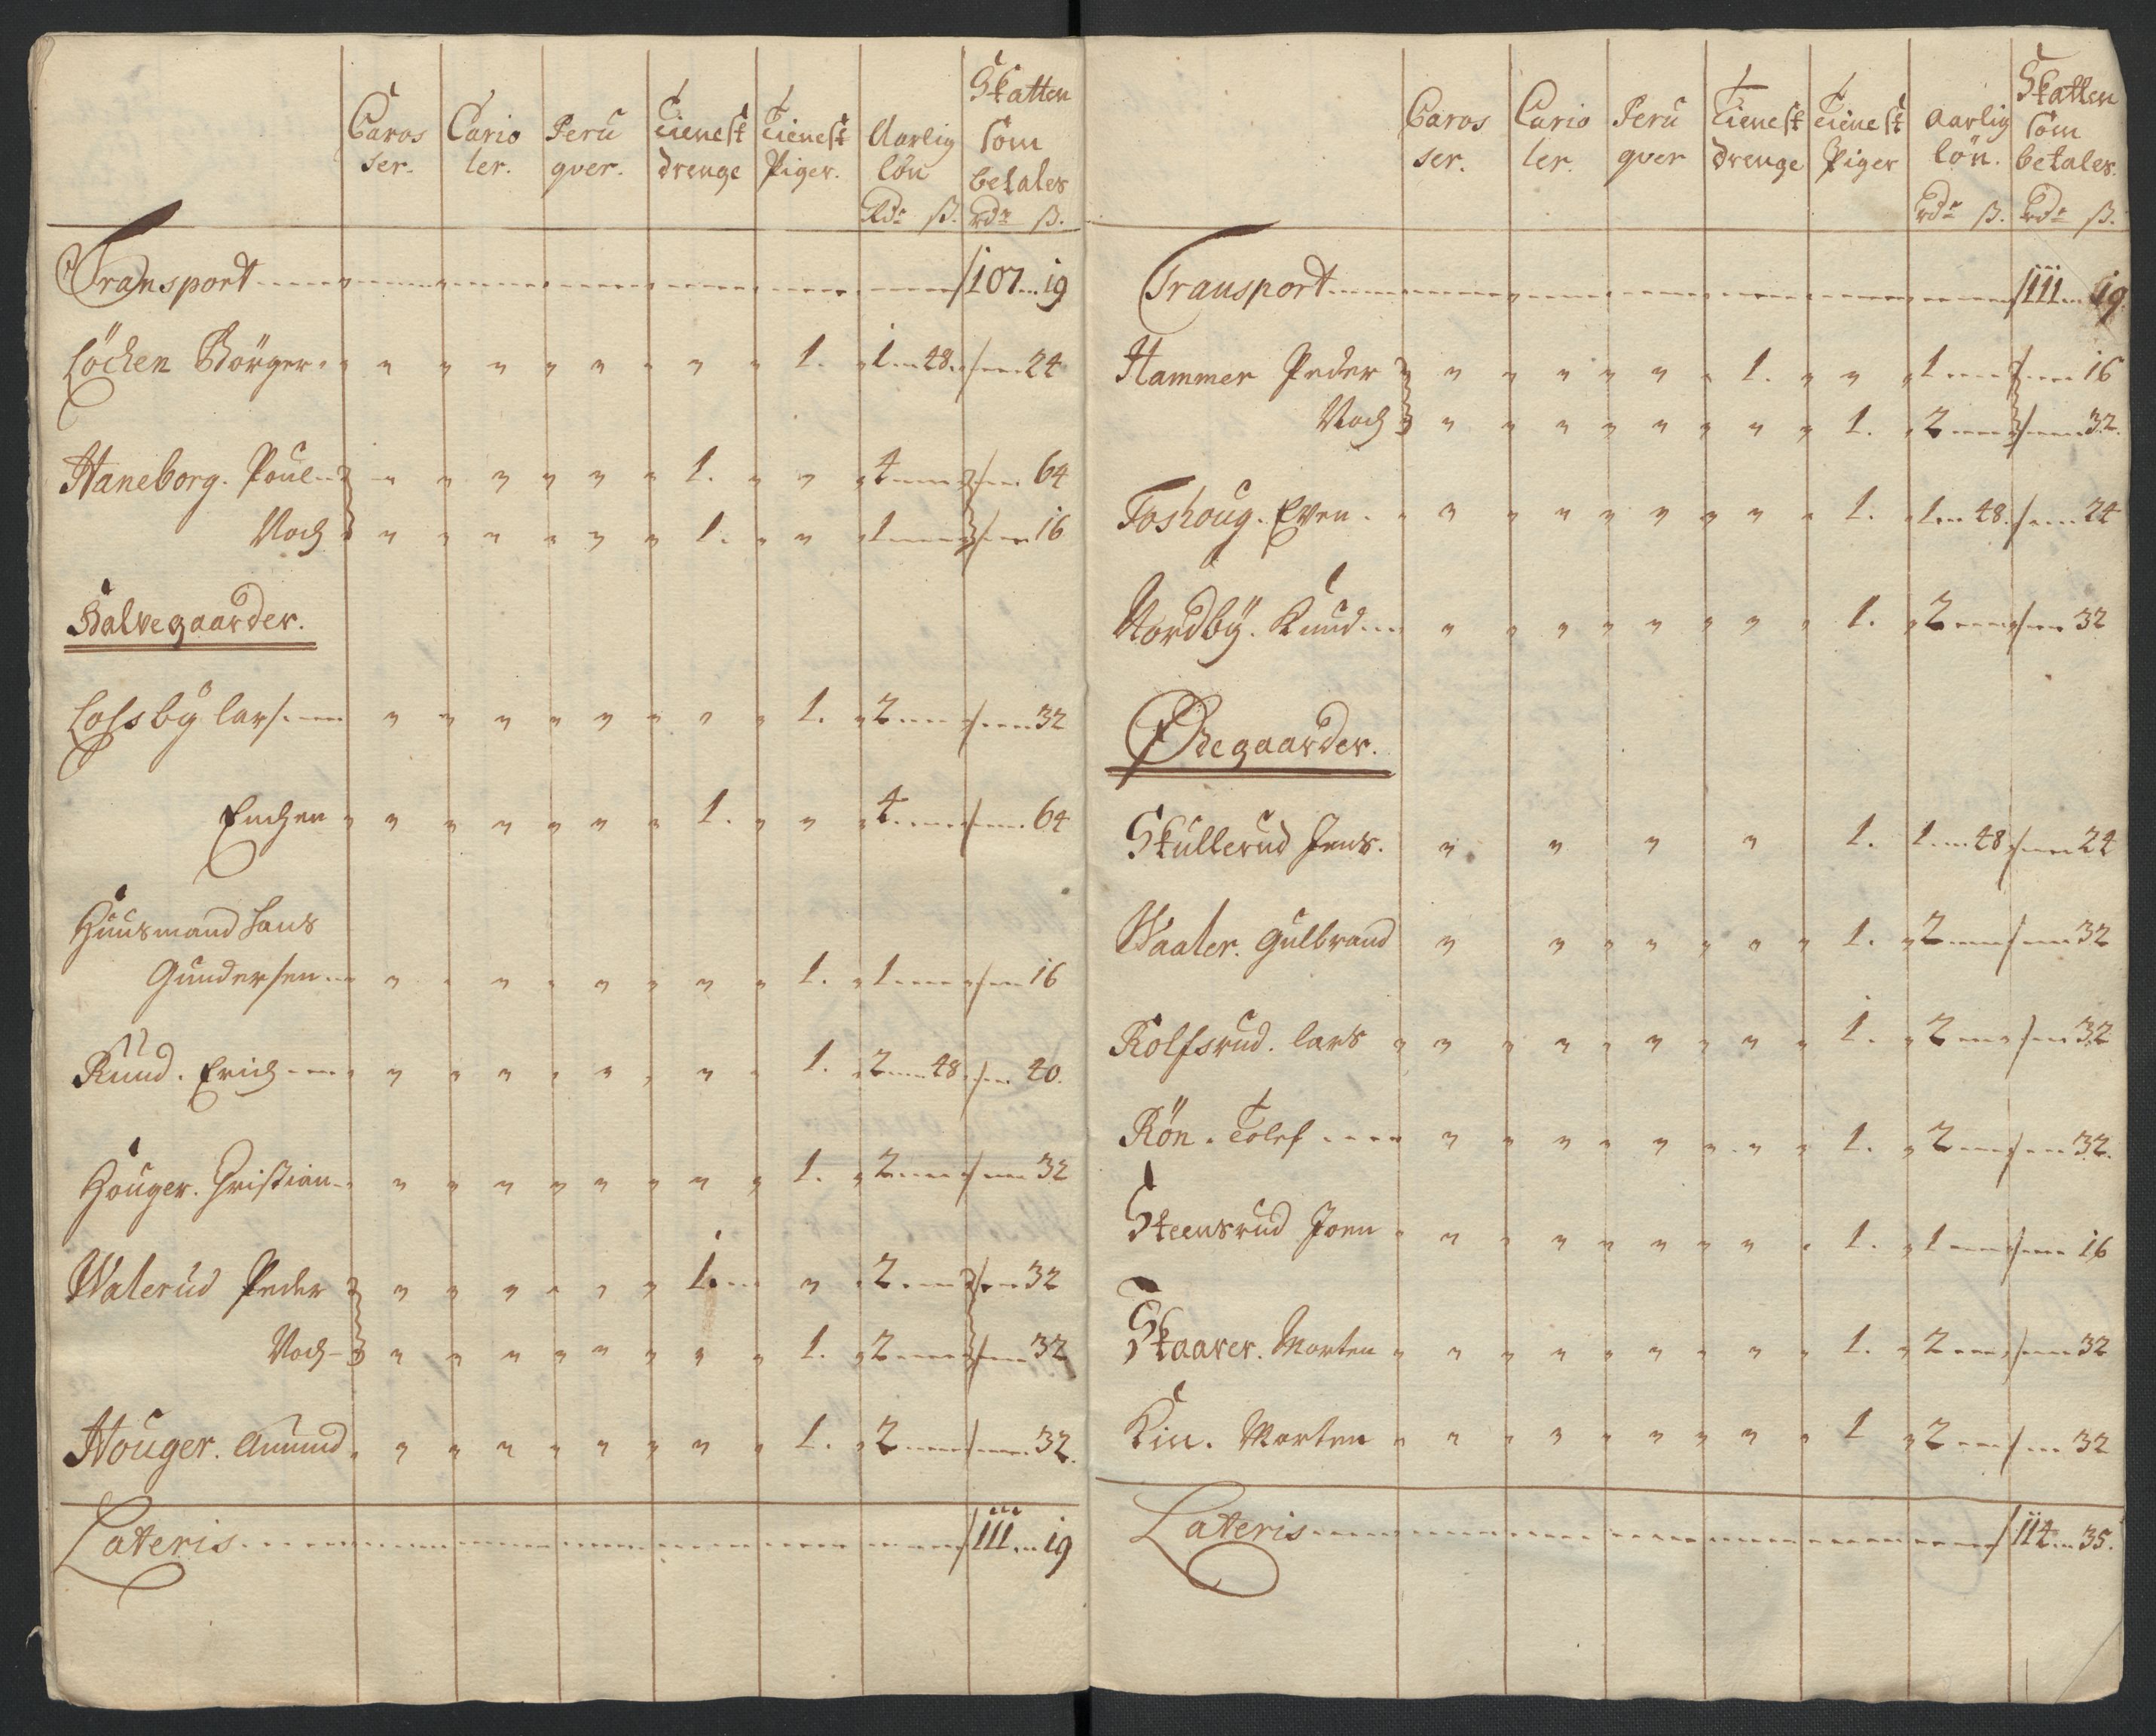 Caros
ser.
Cario
ler.
Peru
qver.
Tienest
drenge
Tienest
Piger.
Aarlig
løn
Rdr ß.
Skatten
som
betales
Rdr ß.
Transport 107 19
Löchen Börger " " " " 1. 1 48 24
Haneborg. Poul " " " 1. " 4 64
Noch " " " 1. " 1 16
Halvegaarder.
Lossby Lars " " " " 1. 2 32
Enchen " " " 1. " 4 64
Huusmand Hans
Gundersen " " " " 1. 1 16
Ruud. Erich " " " " 1. 2 48 40.
Houger. Christian " " " " 1. 2 32
Walerud Peder " " " 1. " 2 32
Noch " " " " 1. 2 32
Houger. Amund " " " " 1. 2 32.
Lateris 111 19
Caros
ser.
Cario
ler.
Peru
qver
Tienest
drenge
Tienest
Piger
Aarlig
løn.
Rdr ß.
Skatten
som
betales.
Rdr ß.
Transport 111 19.
Hammer Peder " " " 1. " 1 16
Noch " " " " 1. 2 32.
Foshoug. Even " " " " 1. 1 48. 24
Nordby. Knud " " " " 1. 2 32
Ødegaarder.
Skullerud Jens. " " " " 1. 1 48 24
Waaler. Gulbrand " " " " 1. 2 32
Rolfsrud. Lars " " " " 1. 2 32
Rön. Tolef " " " " 1. 2 32.
Steensrud Joen " " " " 1. 1 16
Skaarer. Morten " " " " 1. 2 32
Kiu. Morten " " " " 1 2 32
Lateris 114 35.